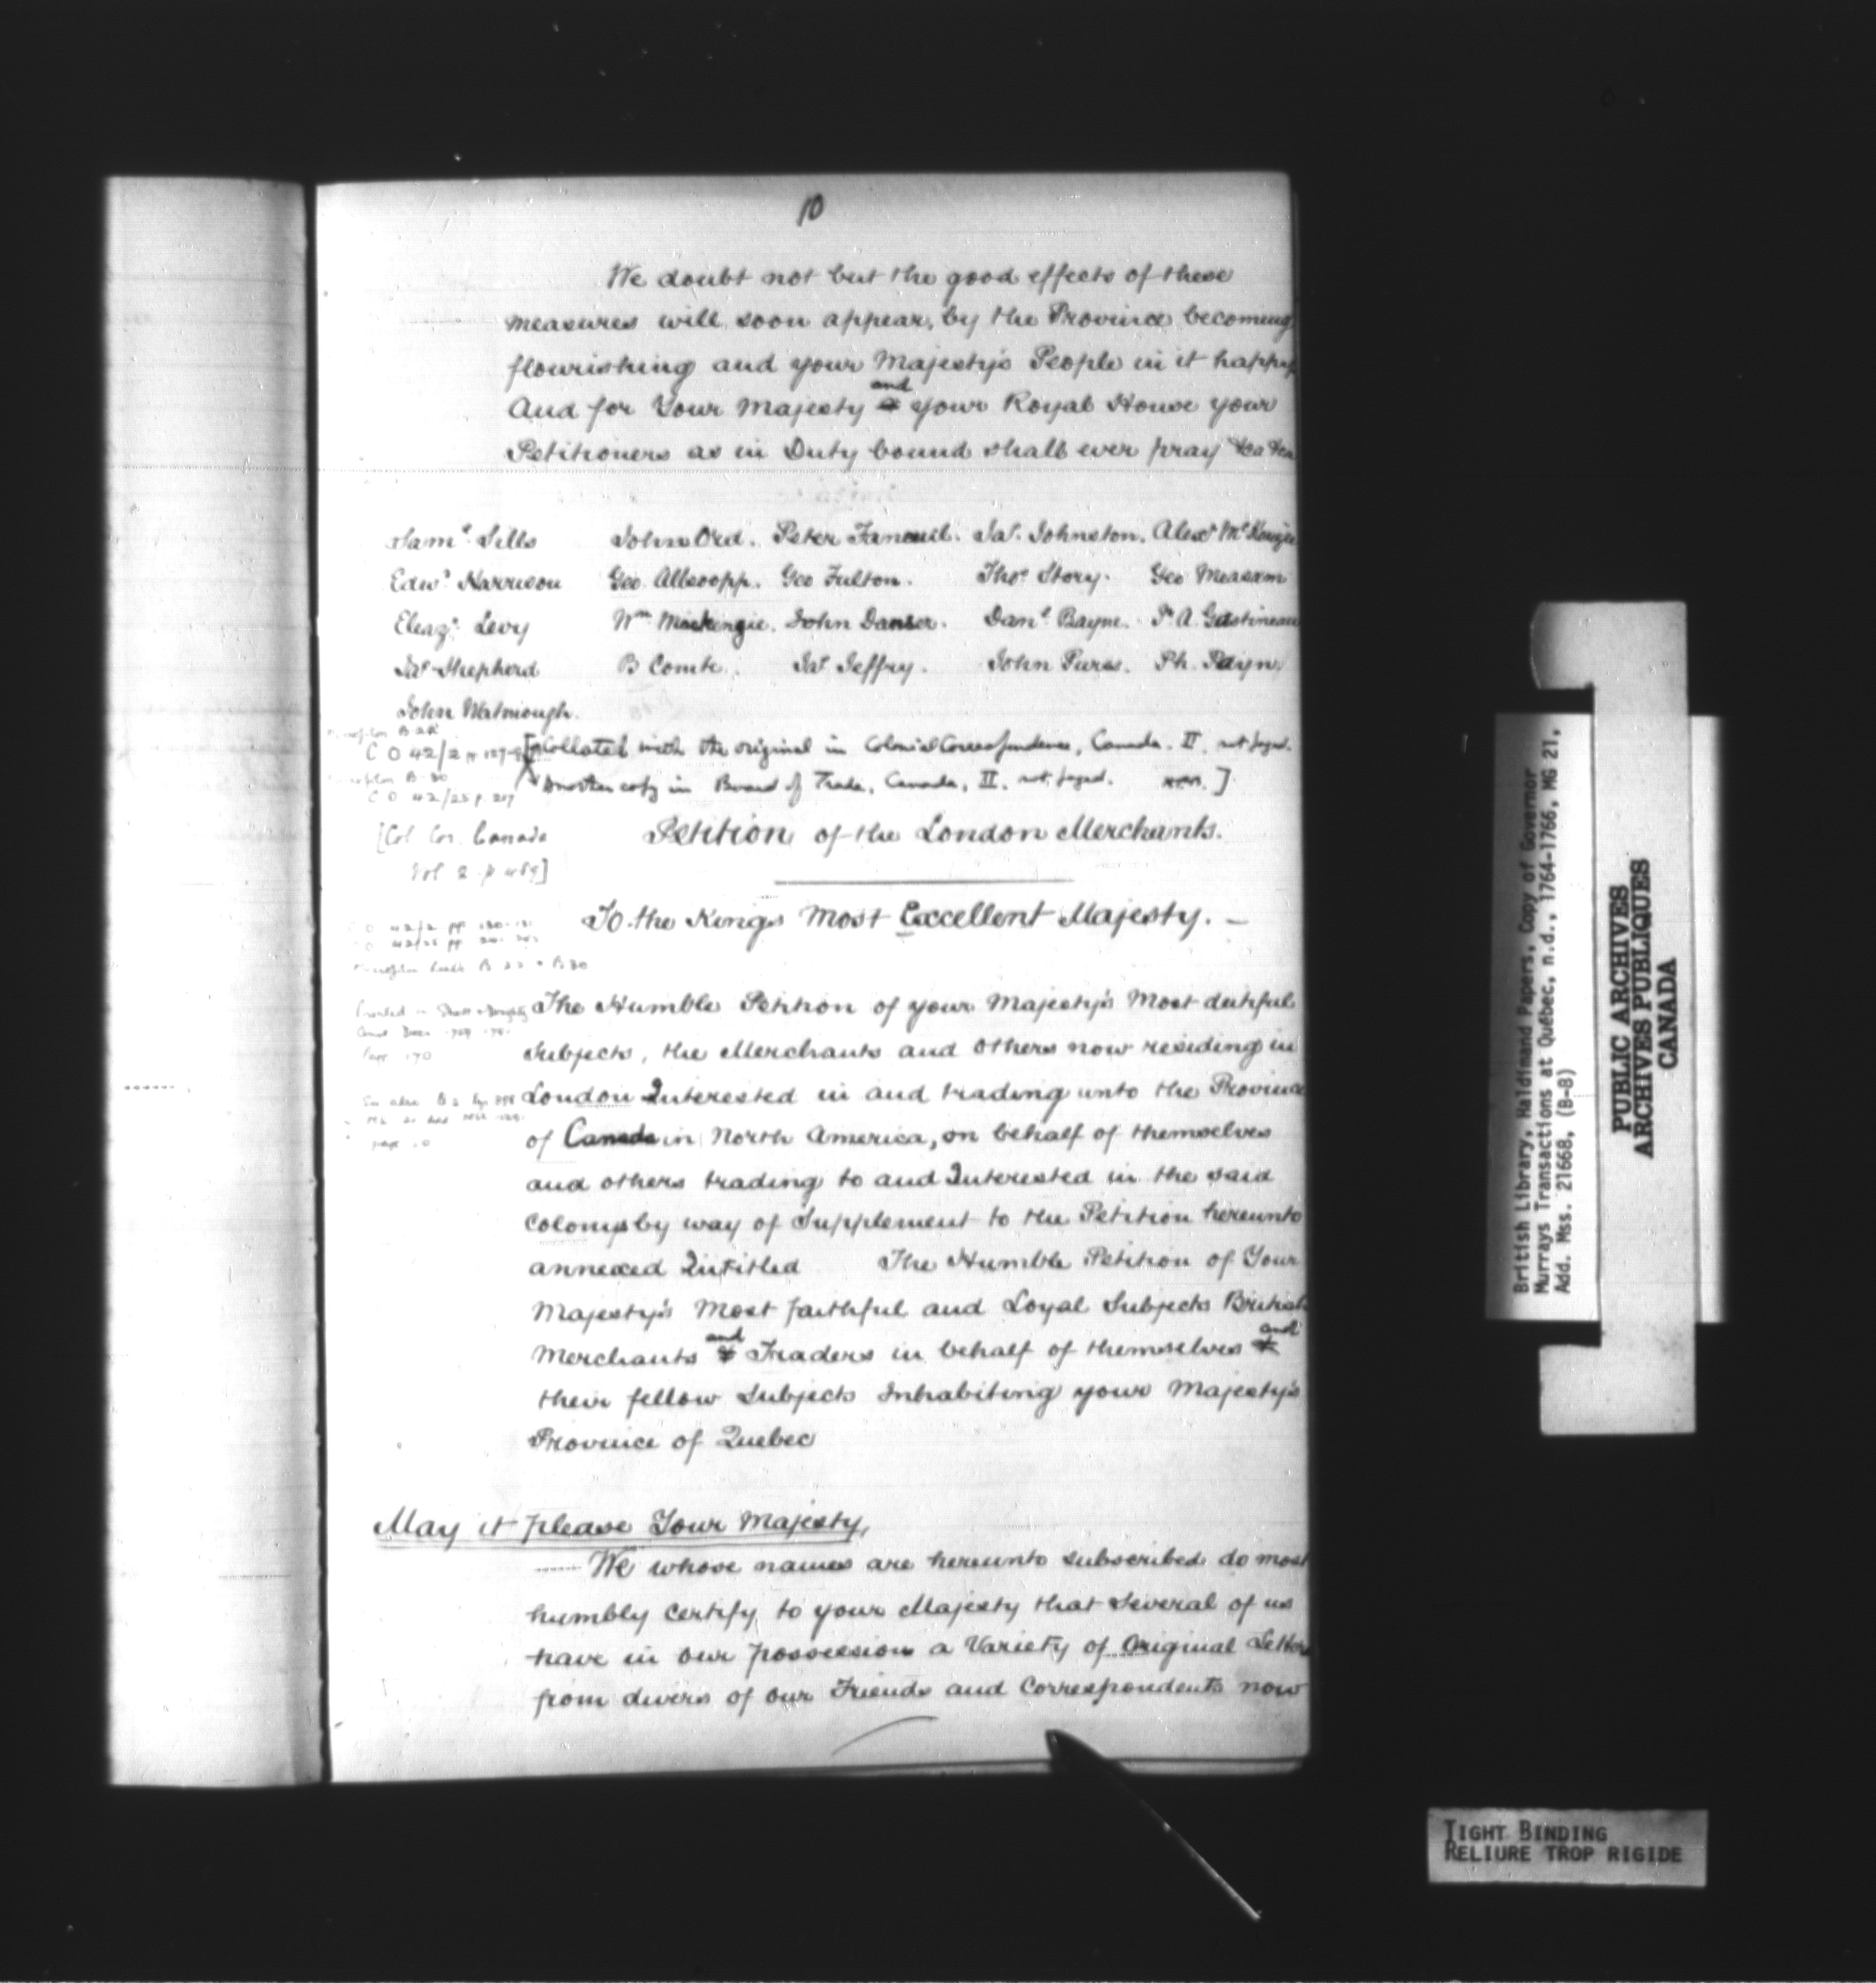 10
We doubt not but the good effects of these
measures will soon appear, by the Province becoming
flourishing and your Majesty's People in it happy
And for Your Majesty and your Royal House your
Petitioners as in Duty bound shall ever pray &ca &ca
Saml Sills John Ord. Peter Faneuil. Jas. Johnston. Alexr McKenzie
Edwd Harrison Geo. Allsopp. Geo Fulton. Thos Story. Geo Measam
Eleazr Levy Wm Mackenzie. John Danser. Danl Bayne. P. A. Gastineau
Jas Shepherd B Comte. Jas Jeffry. John Purss. Ph. Payn,
John Watmough.
C O 42/2
[Collated with the original in Colonial Correspondence, Canada. II. not paged.
Another copy in Board of Trade, Canada, II. not paged. ]
C O 42/25 p. 217
Petition of the London Merchants.
[Col Cor. Canada
Vol 2 p 489]
To the Kings Most Excellent Majesty. —
The Humble Petition of your Majesty's Most dutiful
Subjects, the Merchants and others now residing in
London Interested in and trading unto the Province
of Canada in North America, on behalf of themselves
and others trading to and Interested in the said
Colony by way of Supplement to the Petition hereunto
annexed Intitled The Humble Petition of Your
Majesty's Most faithful and Loyal Subjects British
Merchants and Traders in behalf of themselves and
their fellow Subjects Inhabiting your Majesty's
Province of Quebec
May it please Your Majesty,
We whose names are hereunto subscribed do most
humbly Certify to your Majesty that Several of us
have in our possession a Variety of Original Letters
from divers of our Friends and Correspondents now
British Library, Haldimand Papers, Copy of Governor
Murrays Transactions at Québec, n.d., 1764-1766, MG 21,
Add. Mss. 21668, (B-8)
PUBLIC ARCHIVES
ARCHIVES PUBLIQUES
CANADA
TIGHT BINDING
RELIURE TROP RIGIDE